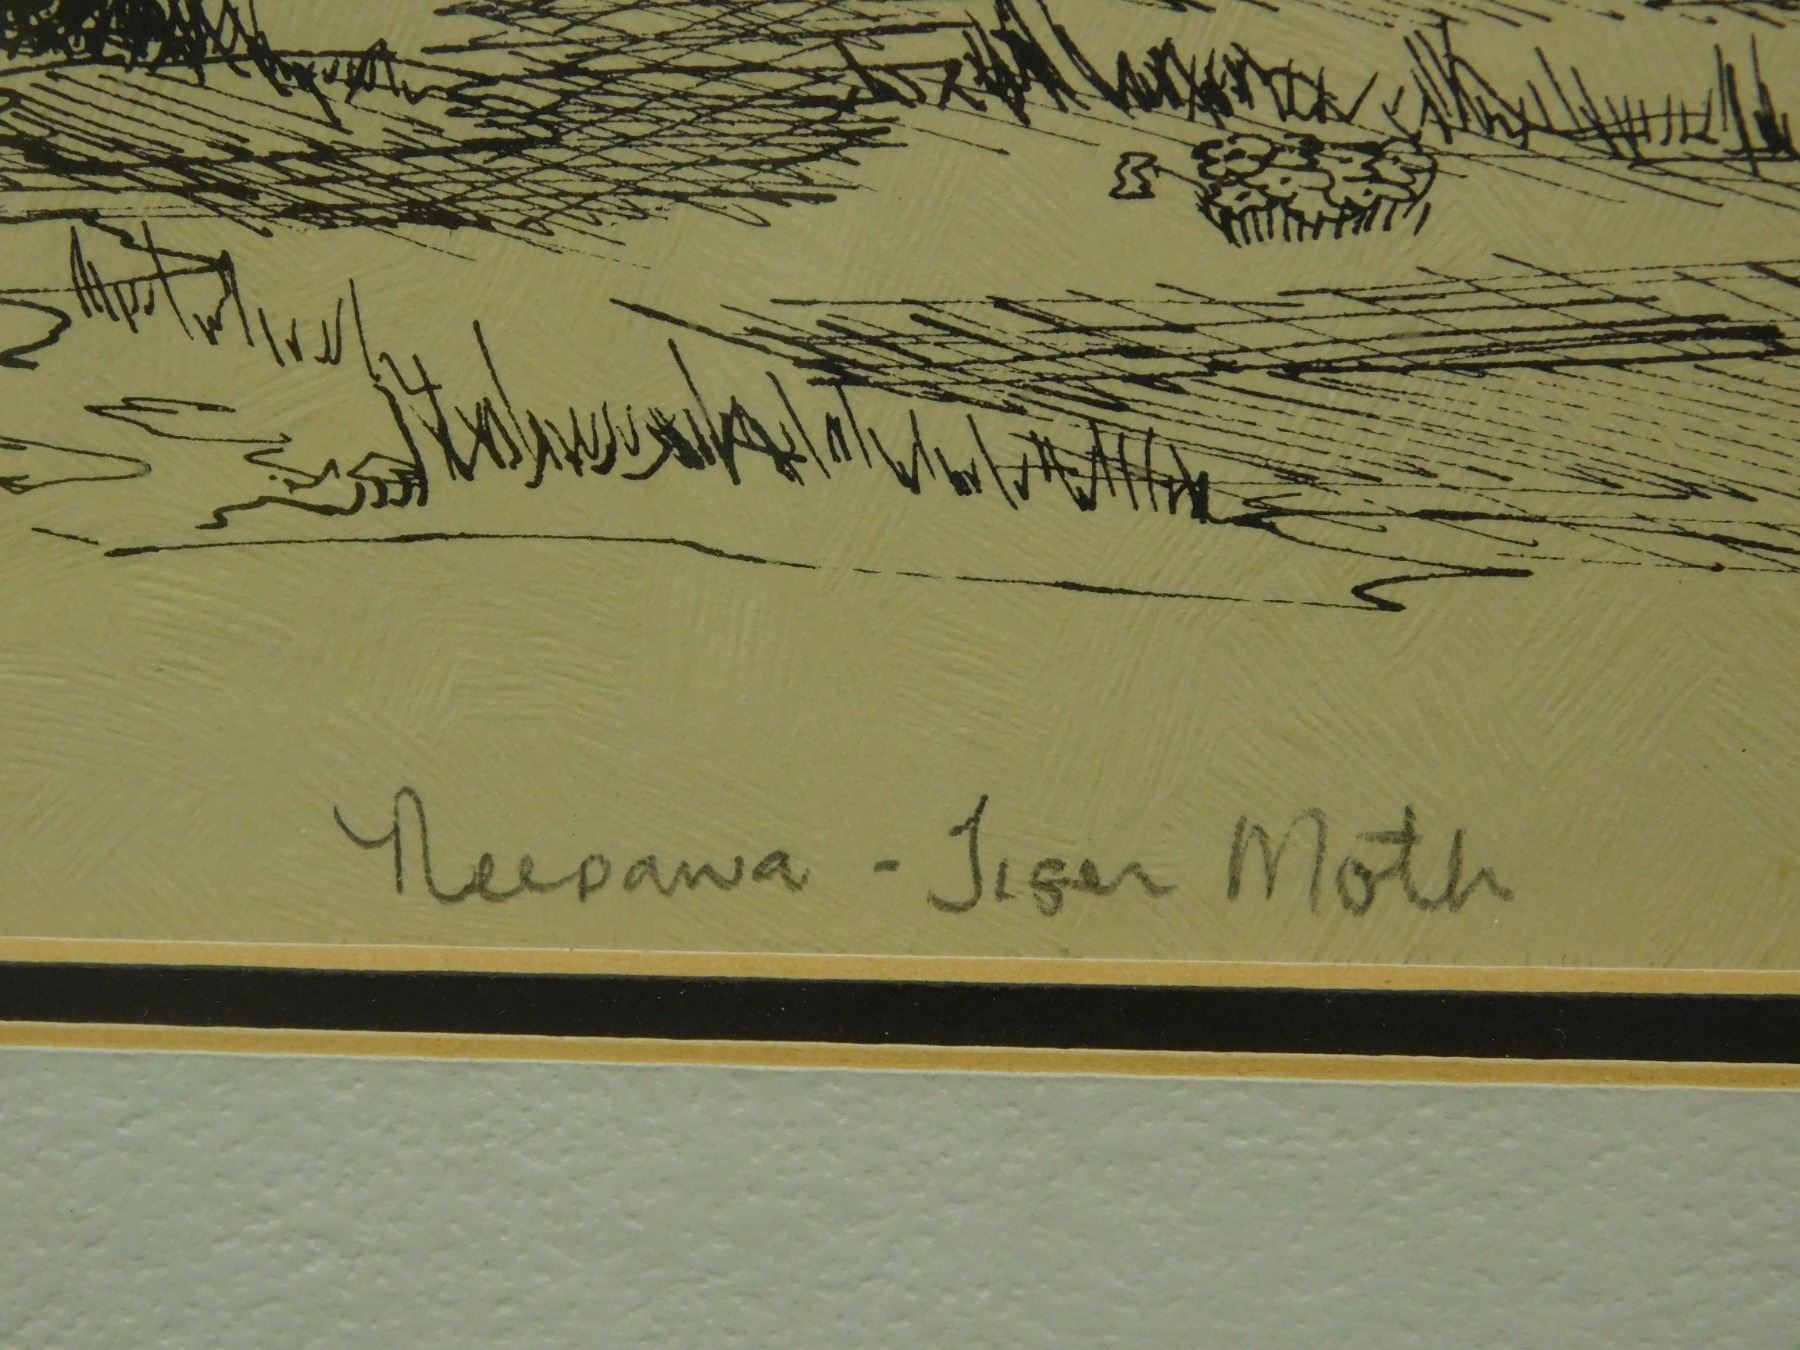 Neepawa - Tiger Moth